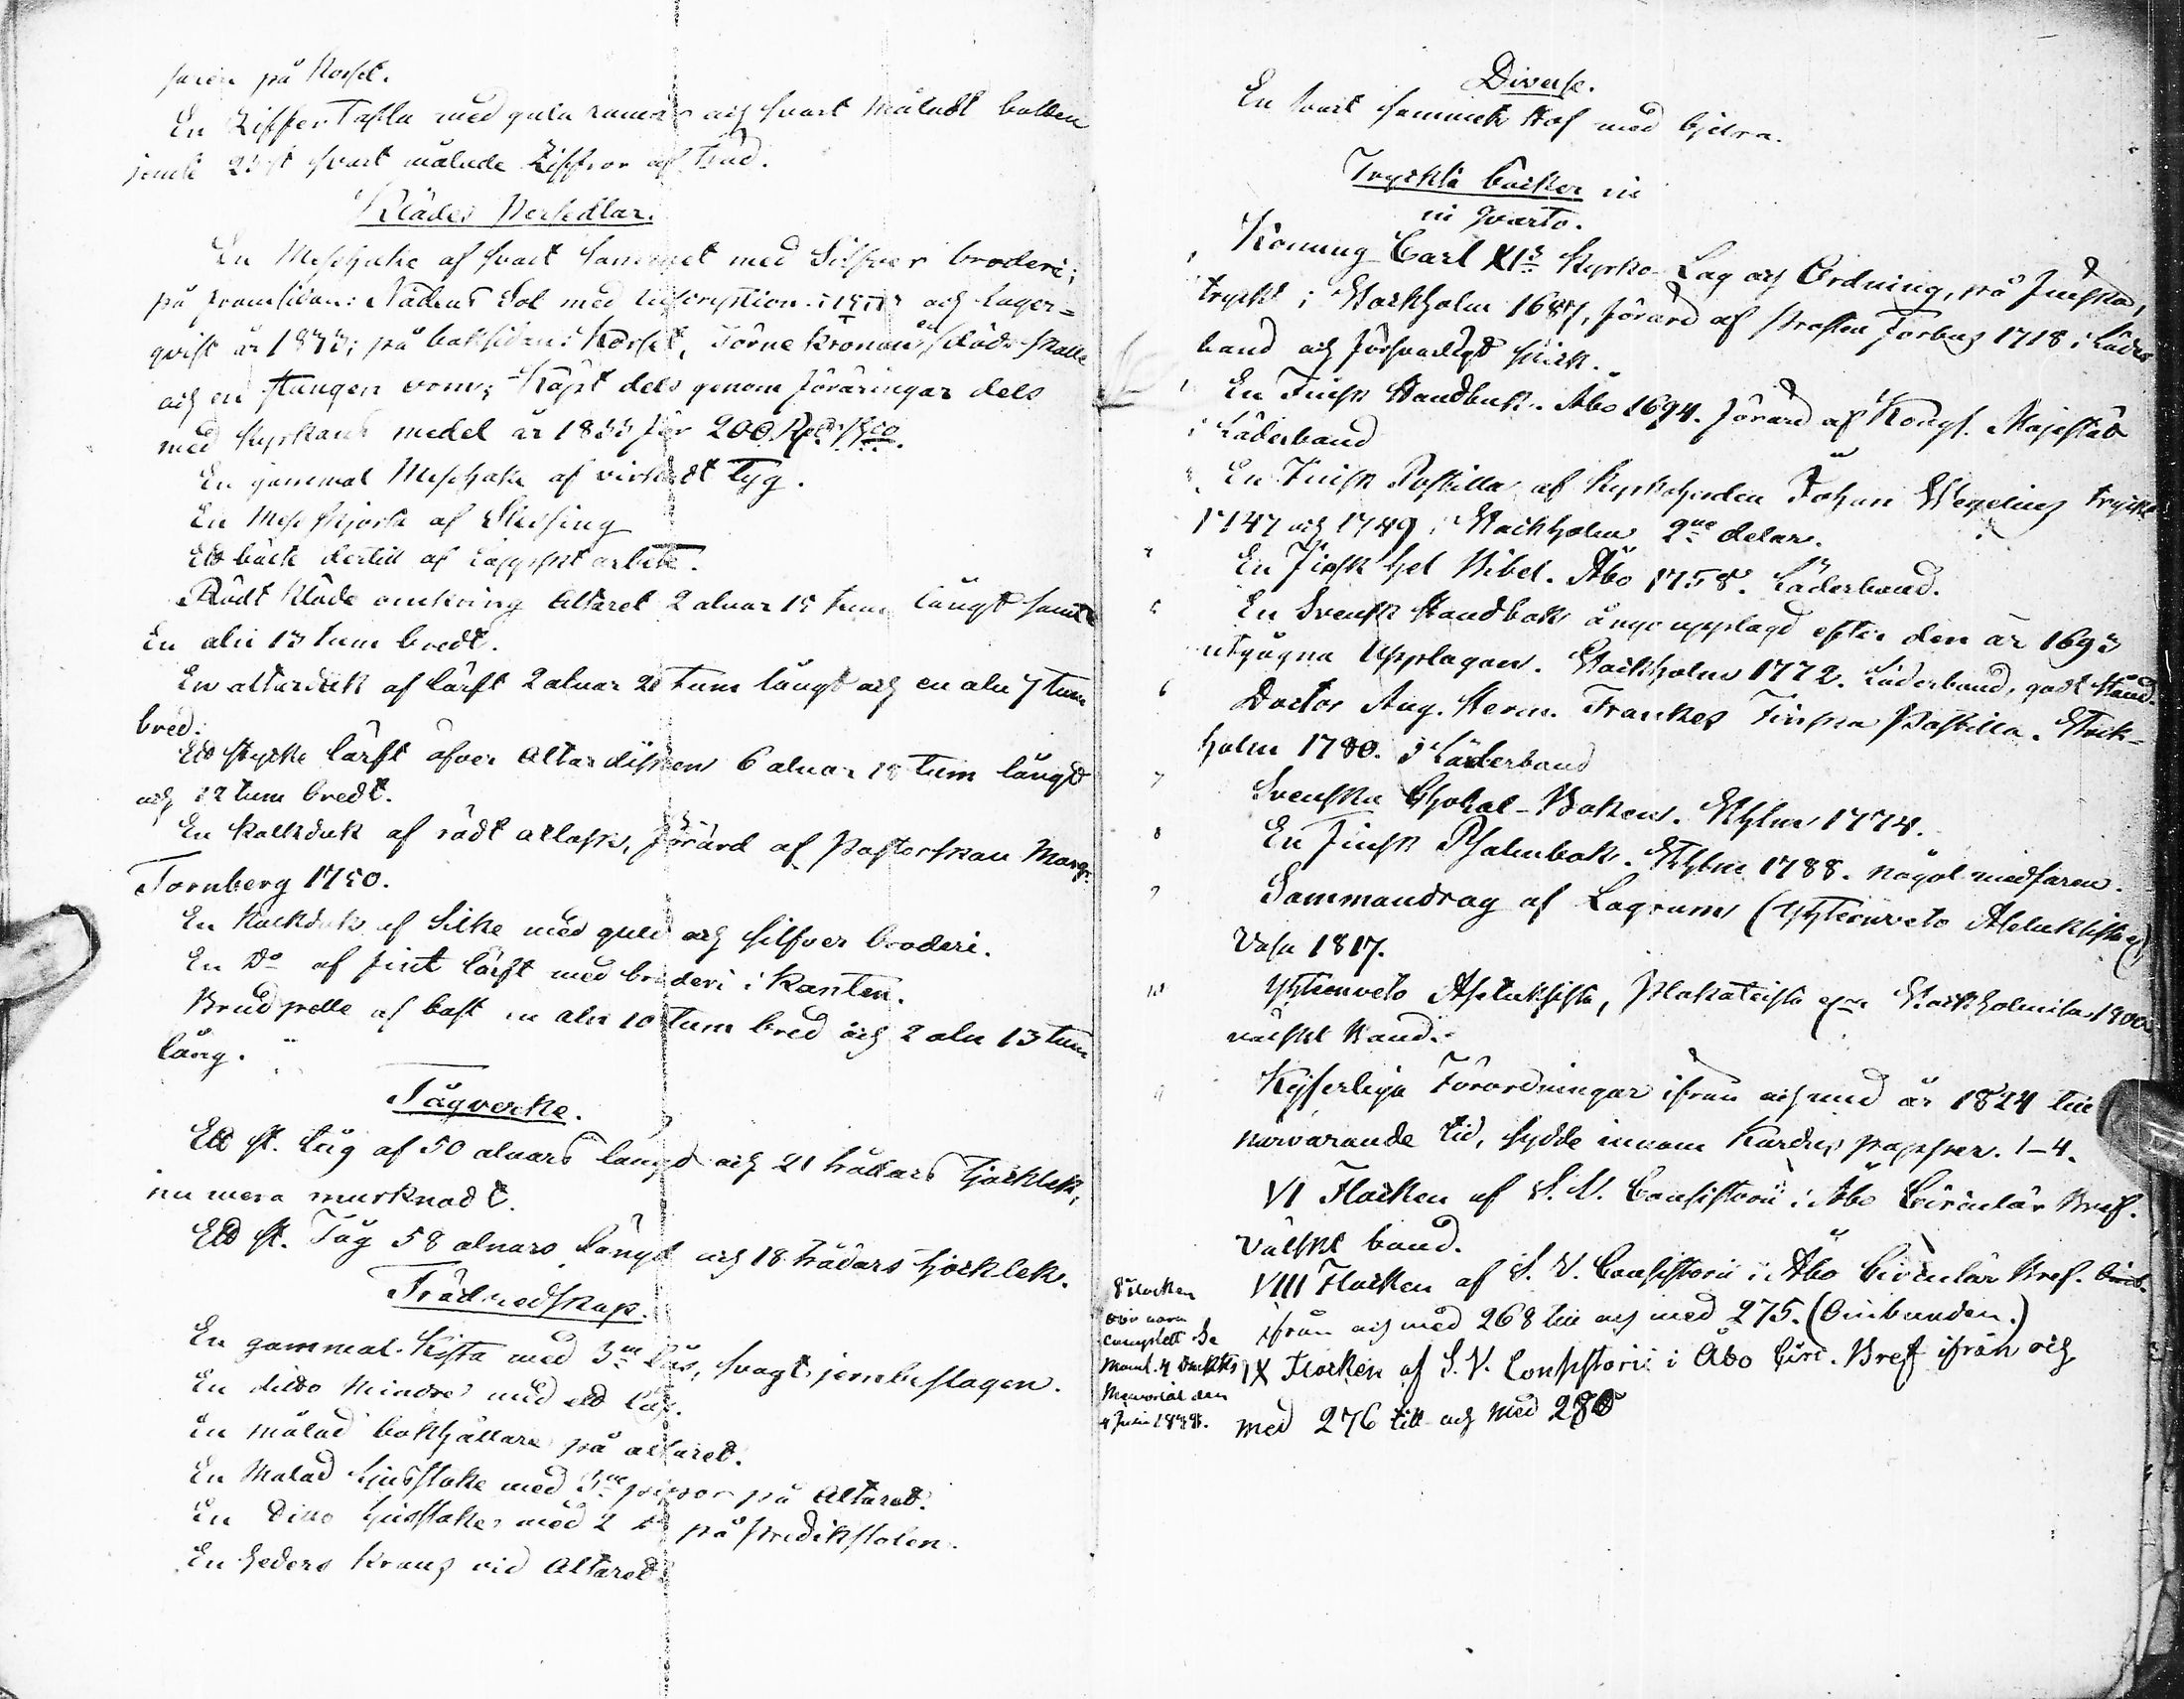 faren på Korset.
En Ziffer Tafla med gula ramar och svart måladt botten
jemte 25 st svart målade Ziffror af Träd.
Klädes Persedlar.
En Messhake af svart sammet med Silfver broderi;
på framsidan: Nådens Sol med inscription יהוה och Lager=
qvist år 1833; på baksidan: Korset, Törnekronan, Döds skalle
och en stungen orm; Köpt dels genom föräringar dels
med Kyrkans medel år 1833 för 200 Rdr Bco.
En gammal Messhake af virkadt Tyg.
En Mess skjorta af Slesing
Ett bälte dertill af Lappskt arbete.
Rödt Kläde omkring Altaret 2 alnar 15 tum långt samt
En aln 13 tum bredt.
En altarduk af lärft 2 alnar 21 tum lång och en aln 7 tum
bred.
Ett stycke lärft öfver Altardisken 6 alnar 18 tum långt
och 12 tum bredt.
En Kalkduk af rödt atlask, förärd af Pastorskan Marg.
Tornberg 1750.
En Kalkduk af Silke med guld och silfver broderi.
En Do af fint lärft med broderi i Kanten.
Brudpelle af baft en aln 10 tum bred och 2 aln 13 tum
lång.
Tågverke.
Ett st. tåg af 50 alnars längd och 21 trådars tjocklek,
nu mera murknadt.
Ett st. Tåg 58 alnars längd och 18 trådars tjocklek.
Trädredskap.
En gammal Kista med 3ne lås, svagt jernbeslagen.
En ditto Mindre med ett lås.
En målad bokhållare på altaret.
En Målad Ljusstake med 3ne pipor på Altaret.
En Ditto Ljusstake med 2 Do på predikstolen.
En heders Krans vid Altaret
Diverse.
En svart sammets Håf med bjellra.
Tryckta böcker
in qvarto.
1 Konung Carl XIs Kyrko-Lag och Ordning, på Finska,
tryckt i Stockholm 1687, förärd af Prosten Forbus 1718 i Läder
band och försvarligt skick.
2 En Finsk Handbok. Åbo 1694. förärd af Kongl. Majestät
i Läderband
3 En Finsk Postilla af Kyrkoherden Johan Wegelius tryckt
1747 och 1749 i Stockholm 2ne delar.
4 En Finsk hel Bibel. Åbo 1758. Läderband.
5 En Svensk Handbok å nyo upplagd efter den år 1693
utgågna Upplagan. Stockholm 1772. Läderband, godt stånd.
6 Doctor Aug. Herm. Frankes Finska Postilla. Stock-
holm 1780. i Läderband
7 Svenska Choral-Boken. Sthlm 1774.
8 En Finsk Psalmbok. Sthlm 1788. något medfaren.
9 Sammandrag af Lagrum (Yhteenveto Asetuksista),
Vasa 1817.
10 Yhteenveto Asetuksista, Plakateista Stockholmisa 1800
välskt Band.
11 Kejserliga Förordningar ifrån och med år 1824 till
närvarande tid, sydde innom Kardus papper. 1–4.
VI Flocken af S. V. Consistorii i Åbo Circulär Bref.
Välskt band.
VIII Flocken af S. V. Consistorii i Åbo Circulär Bref.
ifrån och med 268 till och med 275. (Oinbunden.)
IX Flocken af S. V. Consistorii i Åbo Circ. Bref ifrån och
med 276 till och med 286
Flocken
complett Se
Memorial den
4 Juni 1848.